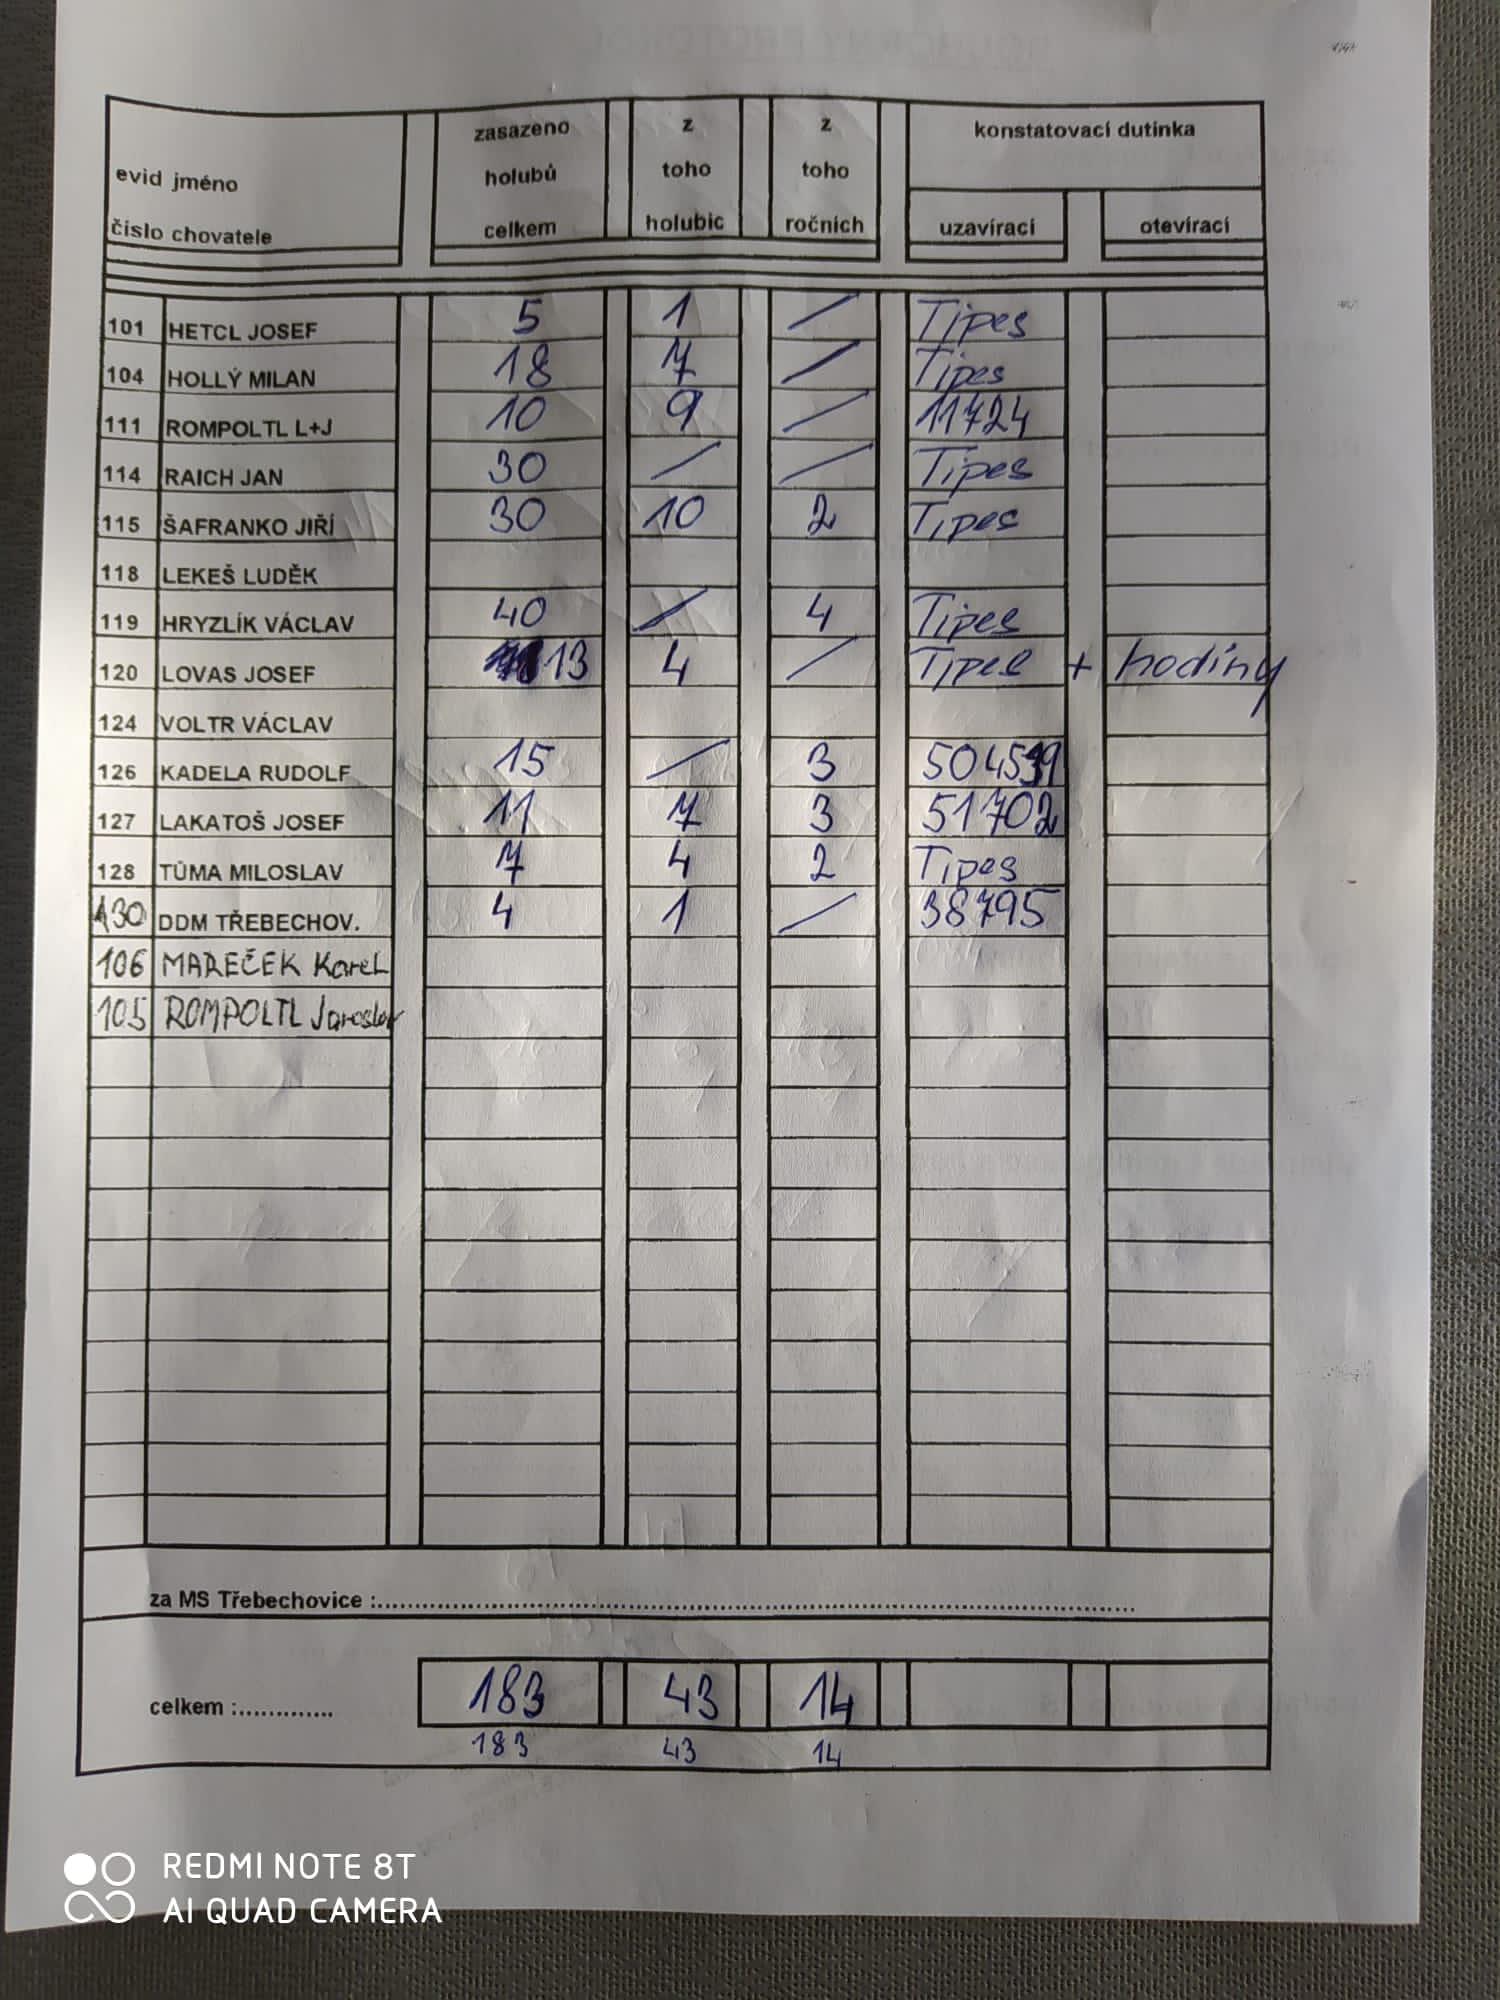 evid jméno
číslo chovatele
zasazeno
holubů
celkem
z
toho
holubic
z
toho
ročních
konstatovací dutinka
uzavírací
otevírací
101 HETCL JOSEF 5 1 / Tipes
104 HOLLÝ MILAN 18 7 / Tipes
111 ROMPOLTL L+J 10 9 / 11724
114 RAICH JAN 30 / / Tipes
115 ŠAFRANKO JIŘÍ 30 10 2 Tipes
118 LEKEŠ LUDĚK
119 HRYZLÍK VÁCLAV 40 / 4 Tipes
120 LOVAS JOSEF 13 4 / Tipes + hodiny
124 VOLTR VÁCLAV
126 KADELA RUDOLF 15 / 3
127 LAKATOŠ JOSEF 11 7 3 51702
128 TŮMA MILOSLAV 7 4 2 Tipes
130 DDM TŘEBECHOV. 4 1 / 38795
106 MAREČEK Karel
105 ROMPOLTL Jaroslav
za MS Třebechovice :..........
celkem :............. 183 43 14
183 43 14
REDMI NOTE 8T
AI QUAD CAMERA